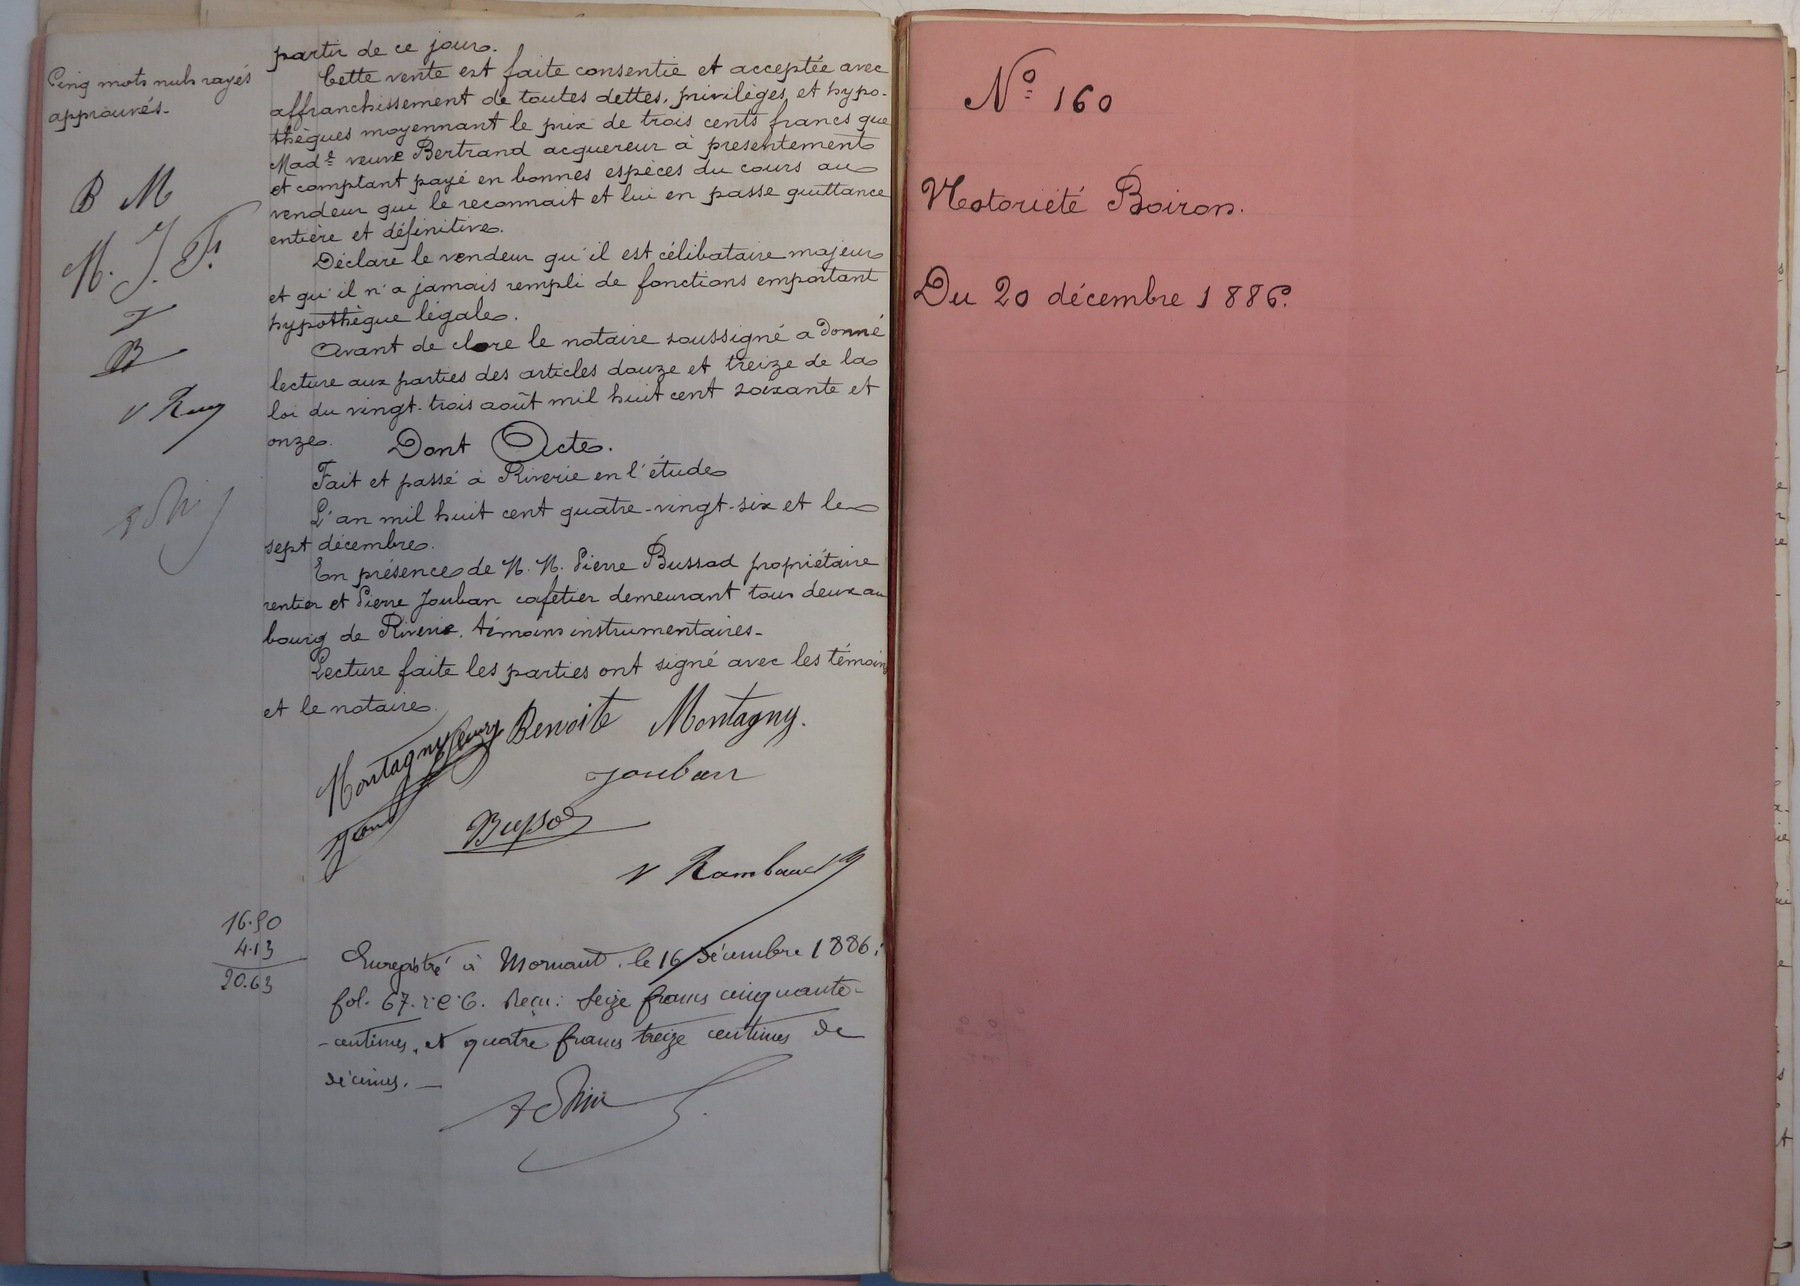 Cinq mots nuls rayés
approuvés.
B M
M. J. F.
J
B
V Ray
partir de ce jour.
Cette vente est faite consentie et acceptée avec
affranchissement de toutes dettes, privilèges et hypo-
thèques moyennant le prix de trois cents francs que
Made veuve Bertrand acquereur à présentement
et comptant payé en bonnes espèces du cours au
vendeur qui le reconnait et lui en passe quittance
entière et définitive.
Déclare le vendeur qu'il est célibataire majeur
et qu'il n'a jamais rempli de fonctions emportant
hypothèque légale.
Avant de clore le notaire soussigné a donné
lecture aux parties des articles douze et treize de la
loi du vingt-trois août mil huit cent soixante et
onze. Dont Acte.
Fait et passé à Riverie en l'étude
L'an mil huit cent quatre-vingt-six et le
sept décembre.
En présence de M. M. Pierre Bussod propriétaire
rentier et Pierre Jouban cafetier demeurant tous deux au
bourg de Riverie. témoins instrumentaires-
Lecture faite les parties ont signé avec les témoins
et le notaire.
Montagny Fleury Benoite Montagny.
Jean
Jouban
Bussod
V Rambaud
16.50
4.13
20.63
Enregistré à Mornant, le 16 décembre 1886.
fol. 67. r: C: 6. Reçu: Seize francs cinquante-
-centimes, et quatre francs treize centimes de
décimes. _
N° 160
Notoriété Boiron.
Du 20 décembre 1886.